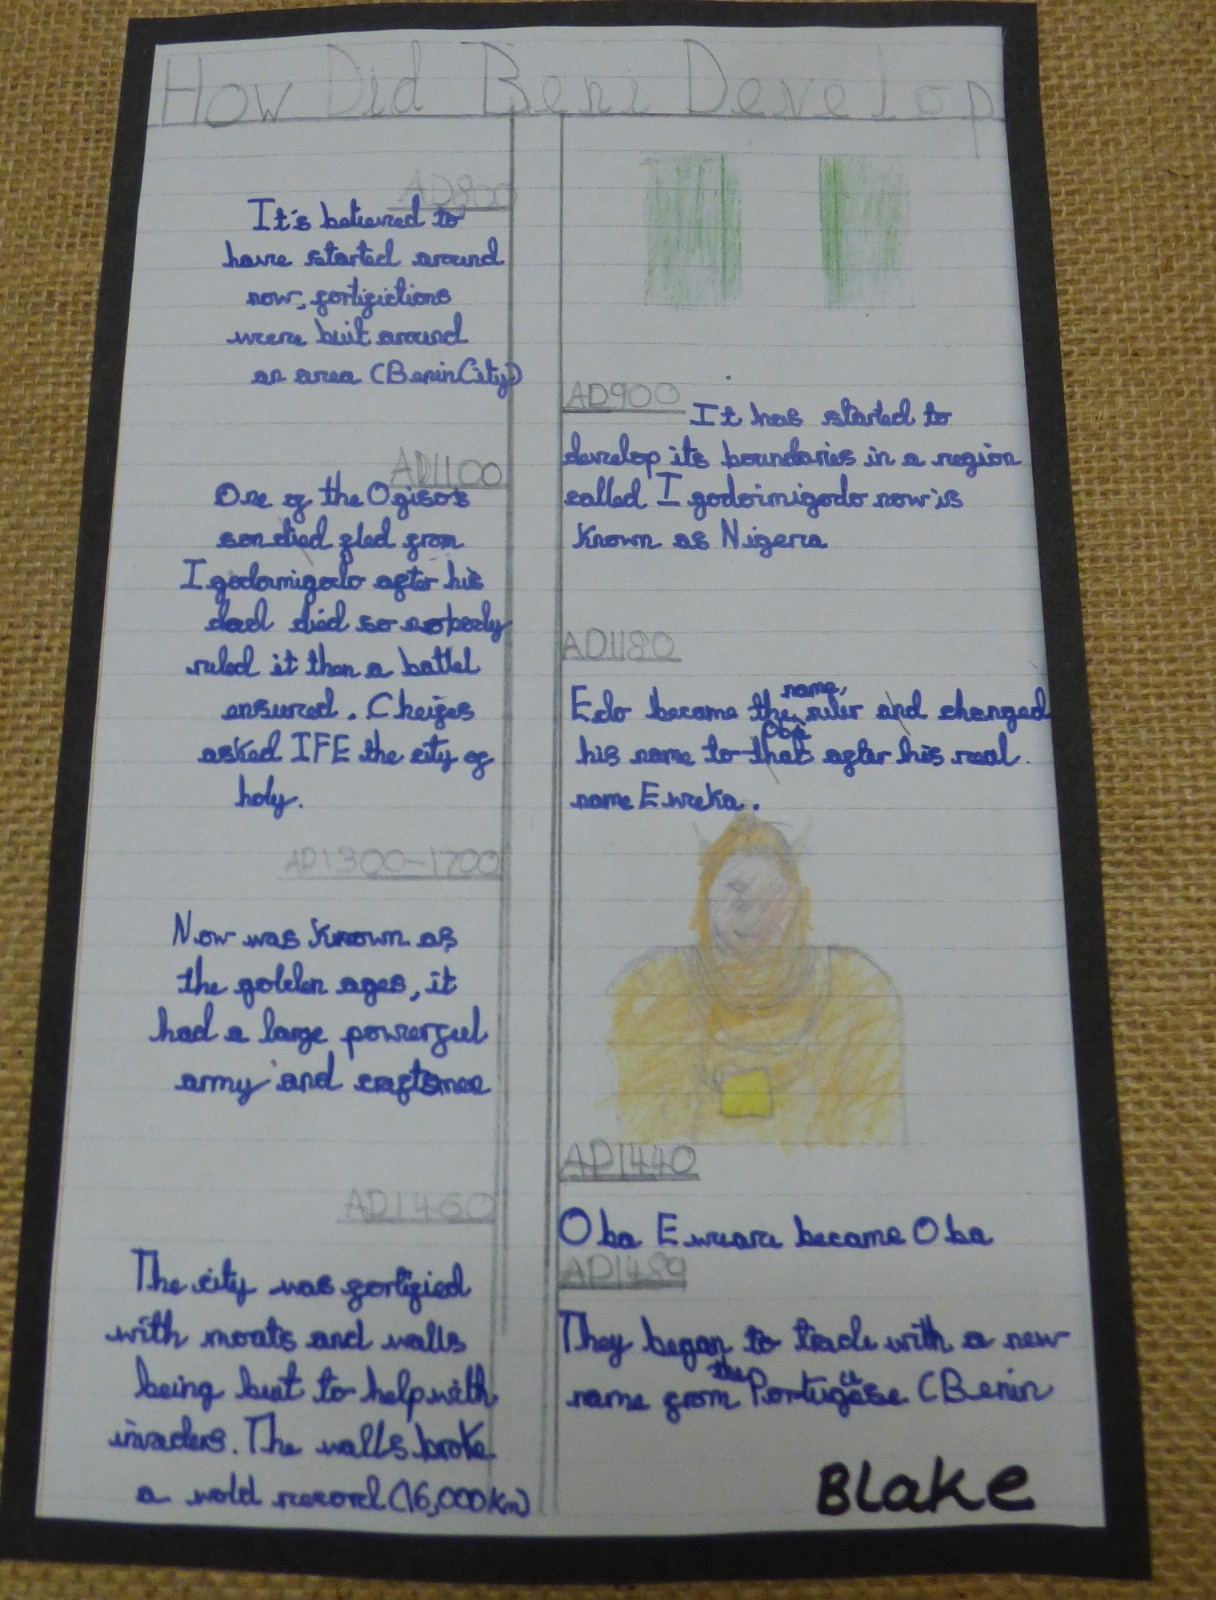 How Did Beni Develop
AD800
It's believed to
have started around
now, fortifictions
were buit around
an area (Benin City)
AD900
It has started to
develop its boundaries in a region
called Igodoimigodo now is
known as Nigera
AD1100
One of the Ogiso's
son died fled from
Igodomigodo after his
dad died so nobody
ruled it than a battel
ensured. Cheifes
asked IFE the city of
holy.
AD1180
Edo became the name, ruler and changed
his name to that Oba after his real
name Eweka.
AD1300-1700
Now was known as
the golden ages, it
had a large powerful
army and craftsmen
AD1440
Oba Eweare became Oba
AD1460
The city was fortified
with moats and walls
being buit to help with
invaders. The walls broke
a wold record (16,000km)
AD1489
They began to trade with a new
name from the Portuguese (Benin
BLake